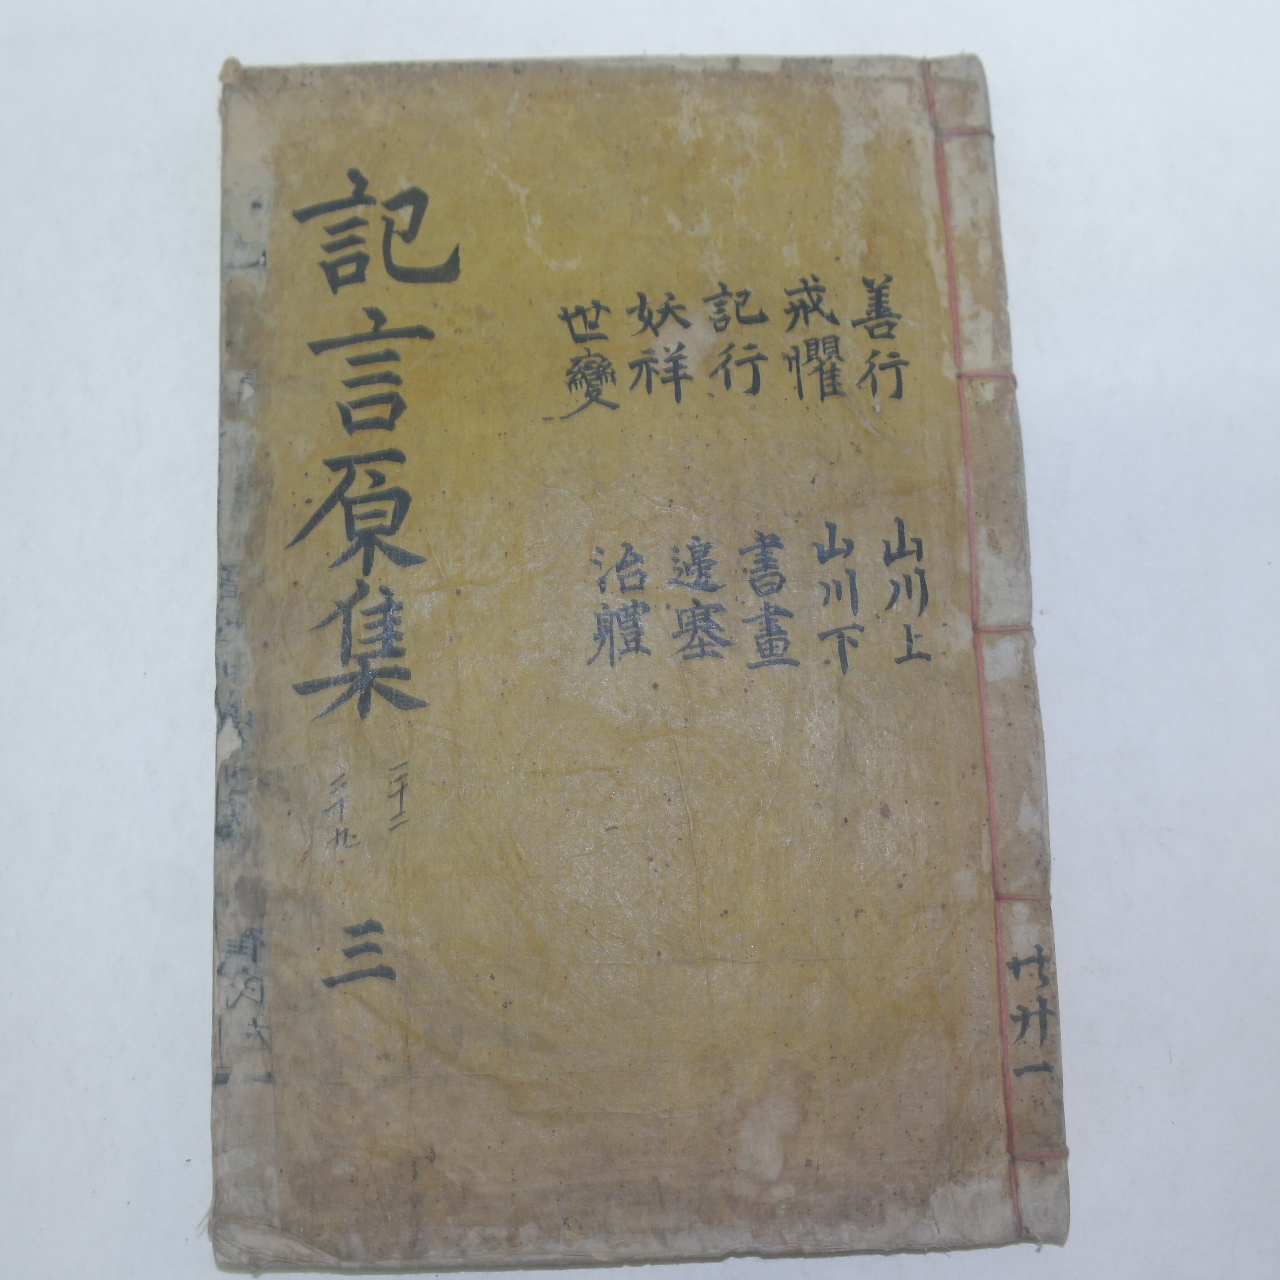 善行
戒懼
記行
妖祥
世變
山川上
山川下
書畫
邊塞
治軆
記言原集
二十二
三
共廿一